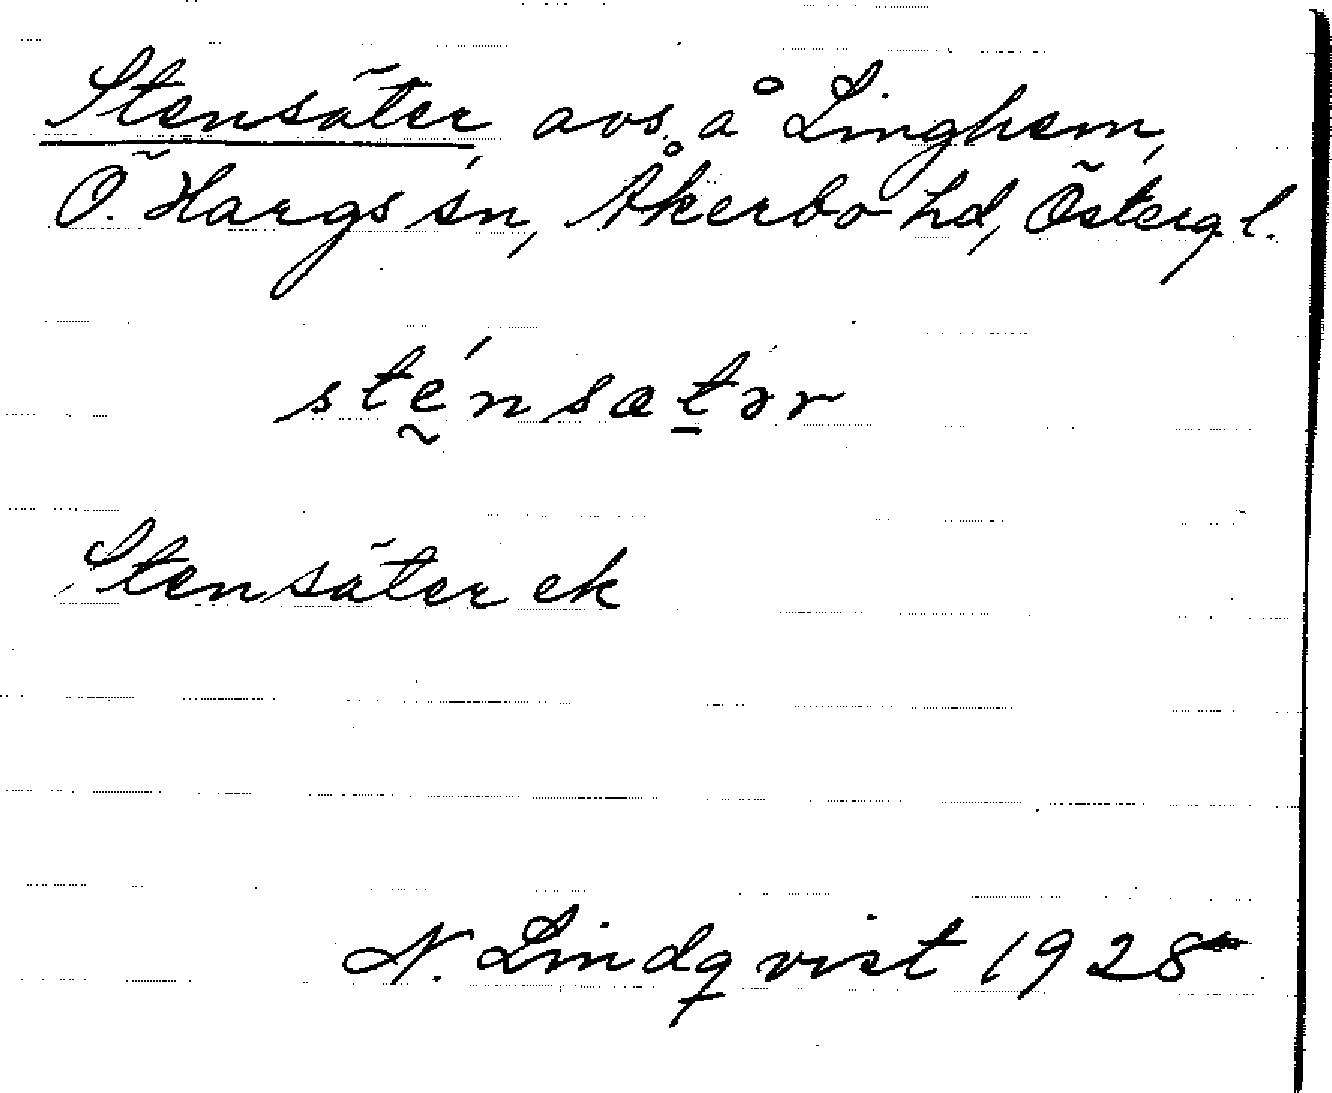 Stensäter avs. å Linghem,
Ö. Hargs sn, Åkerbo hd, Östergl.
stḛ́nsat̠ər
Stensäter ek
N. Lindqvist 1928